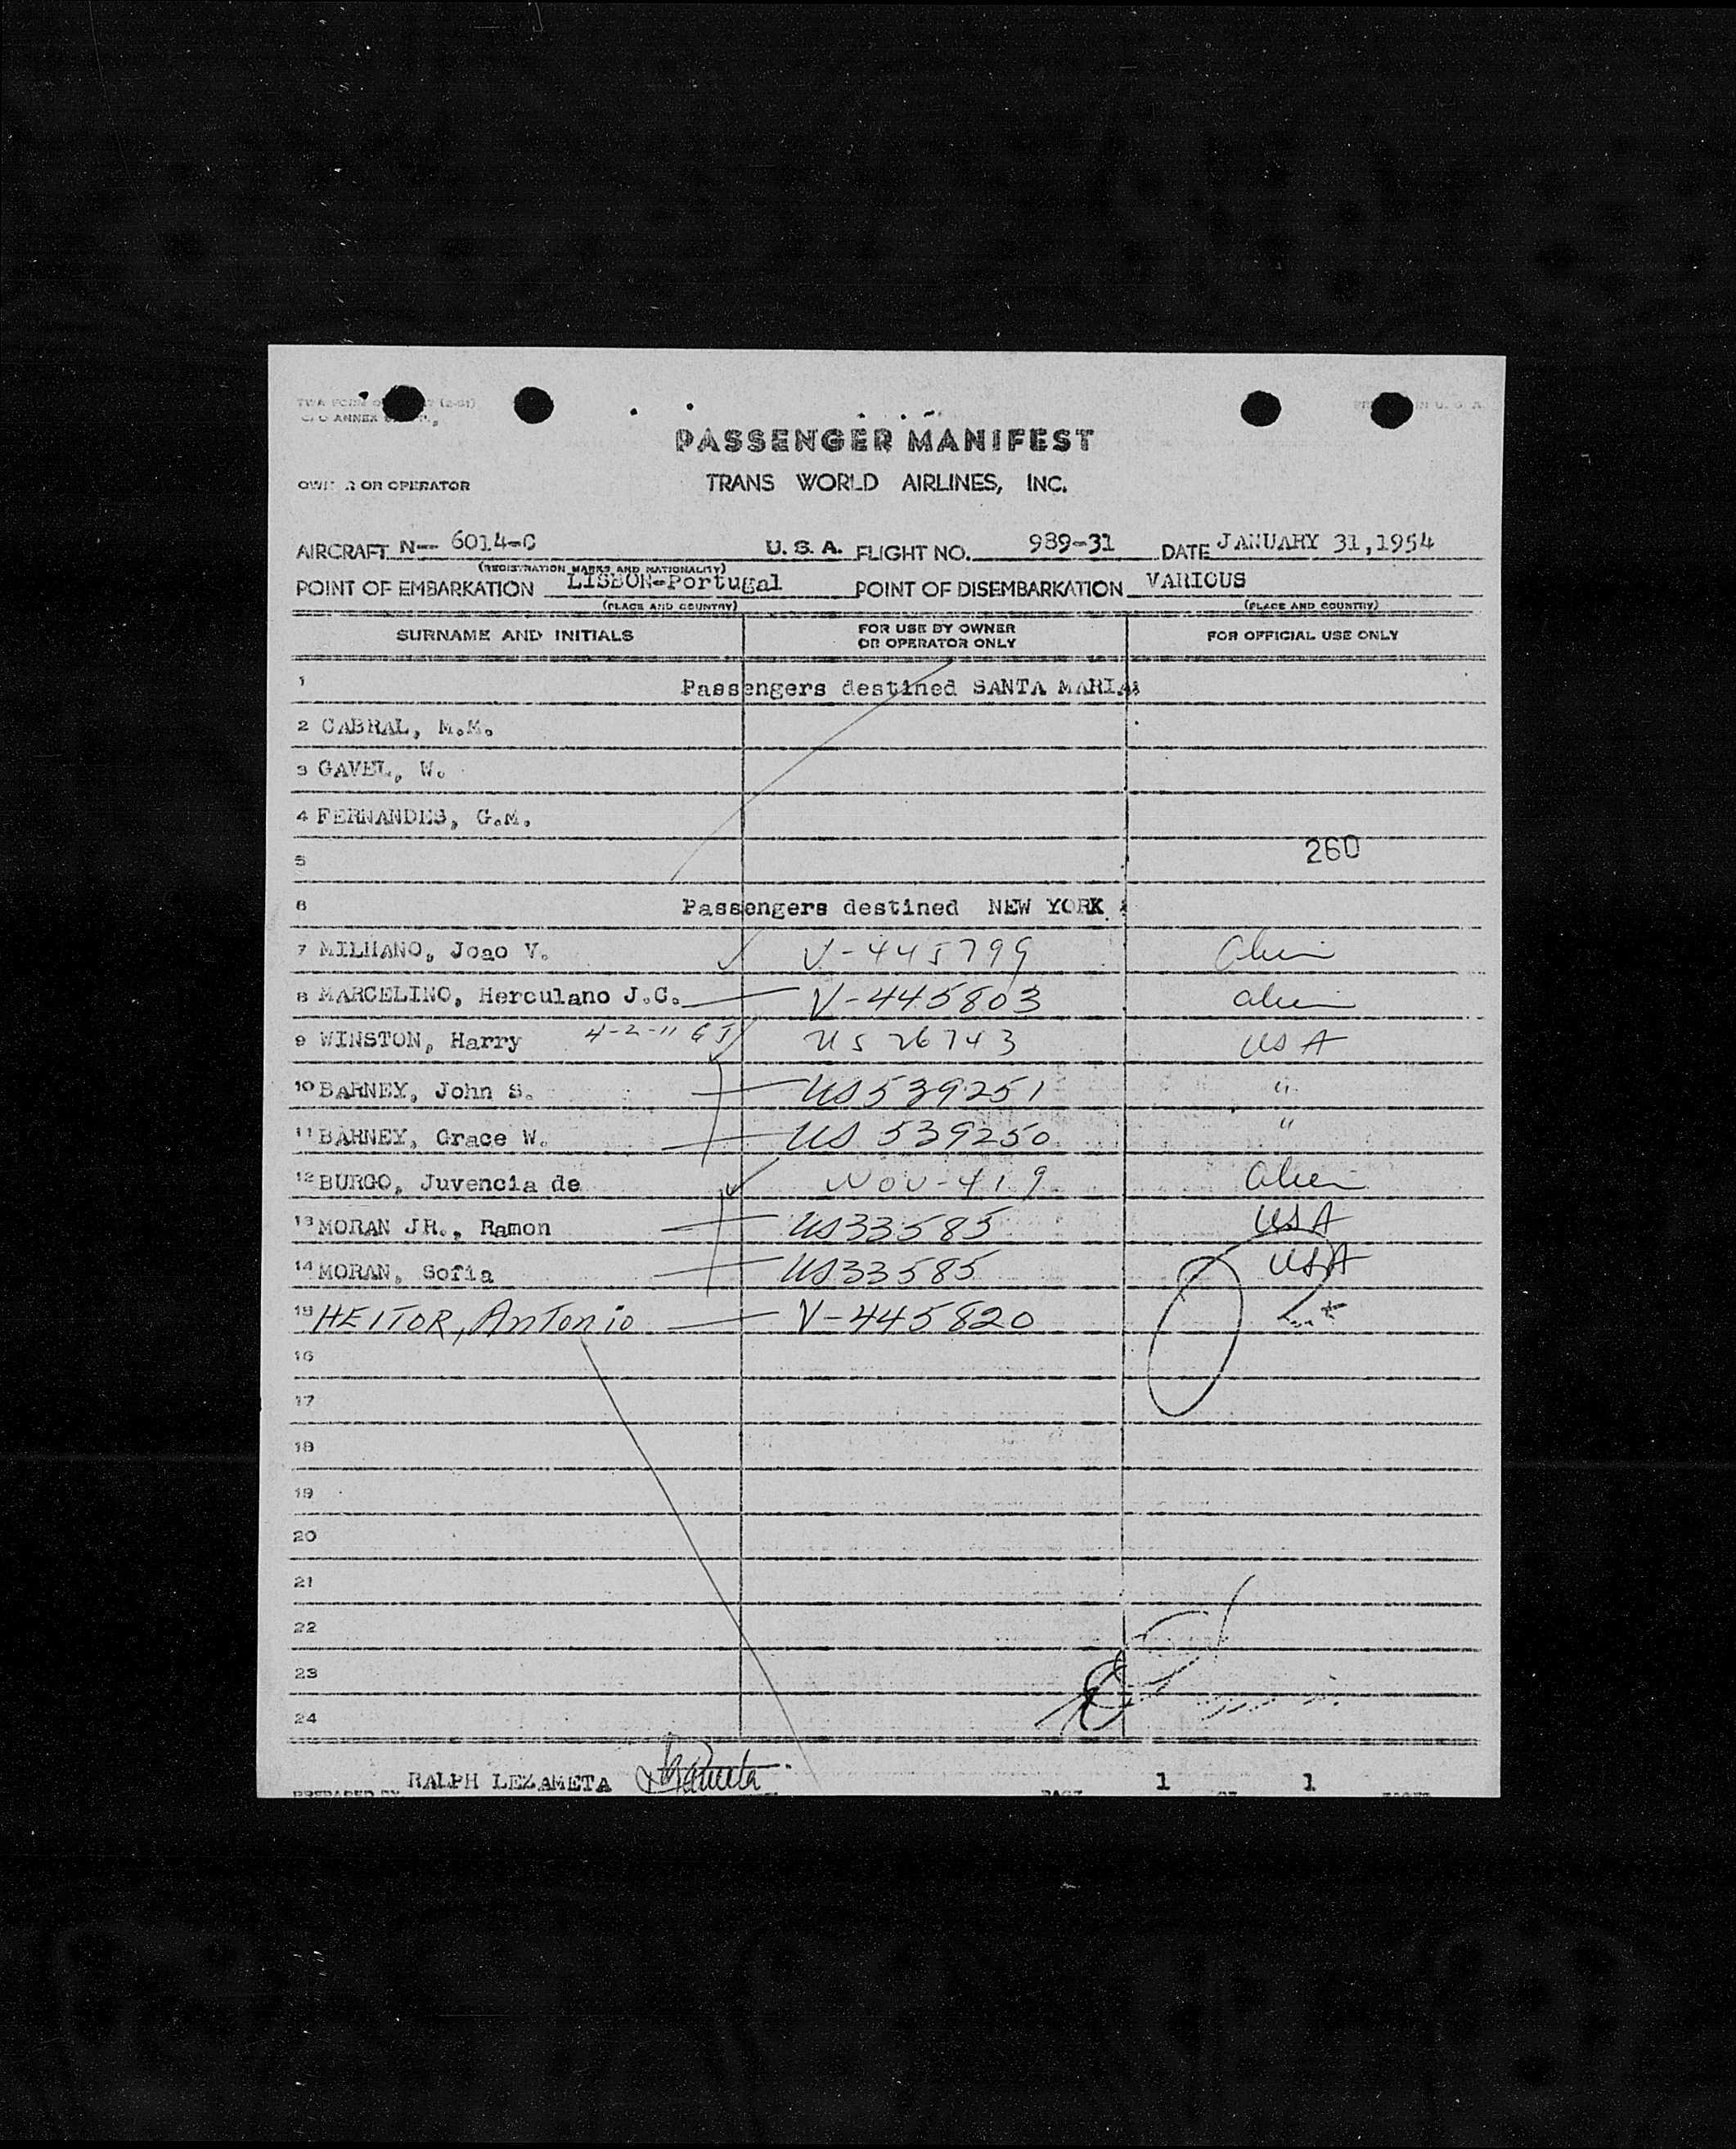 PASSENGER MANIFEST
OR OPERATOR TRANS WORLD AIRLINES, INC.
AIRCRAFT N-- 6014-C U. S. A. FLIGHT NO. 989-31 DATE JANUARY 31,1954
(REGISTRATION MARKS AND NATIONALITY)
POINT OF EMBARKATION LISBON-Portugal POINT OF DISEMBARKATION VARIOUS
(PLACE AND COUNTRY) (PLACE AND COUNTRY)
SURNAME AND INITIALS FOR USE BY OWNER OR OPERATOR ONLY FOR OFFICIAL USE ONLY
1 Passengers destined SANTA MARIA:
2 CABRAL, M.M.
3 GAVEL, W.
4 FERNANDES, G.M.
5 260
6 Passengers destined NEW YORK :
7 MILHANO, Joao V. V-445799 Alien
8 MARCELINO, Herculano J.C. V-445803 alien
9 WINSTON, Harry 4-2-11 US 26743 USA
10 BARNEY, John S. US539251 "
11 BARNEY, Grace W. US 539250 "
12 BURGO, Juvencia de Nov-419 alien
13 MORAN JR., Ramon US33585 USA
14 MORAN, Sofia US33585 USA
15 HEITOR, Antonio V-445820
16
17
18
19
20
21
22
23
24
PREPARED BY RALPH LEZAMETA PAGE 1 OF 1